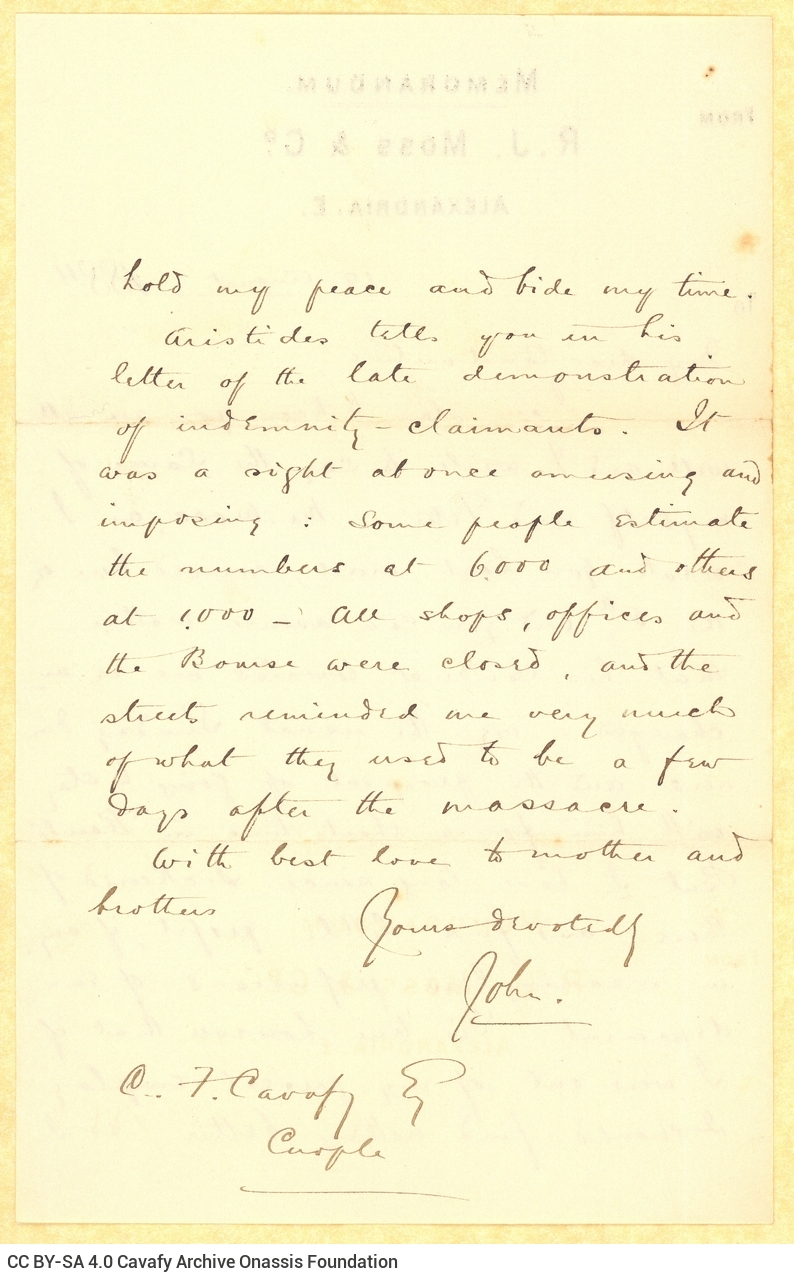 MEMORANDUM.
FROM
R. J. Moss & Co
ALEXANDRIA. E.
hold my peace and bide my time.
Aristides tells you in his
letter of the late demonstration
of indemnity-claimants. It
was a sight at once amusing and
imposing: Some people estimate
the numbers at 6000 and others
at 1,000 – All shops, offices and
the Bourse were closed, and the
streets reminded me very much
of what they used to be a few
days after the massacre.
With best love to mother and
brothers
Yours devotedly
John.
C. F. Cavafy Esq
Cnople
CC BY-SA 4.0 Cavafy Archive Onassis Foundation